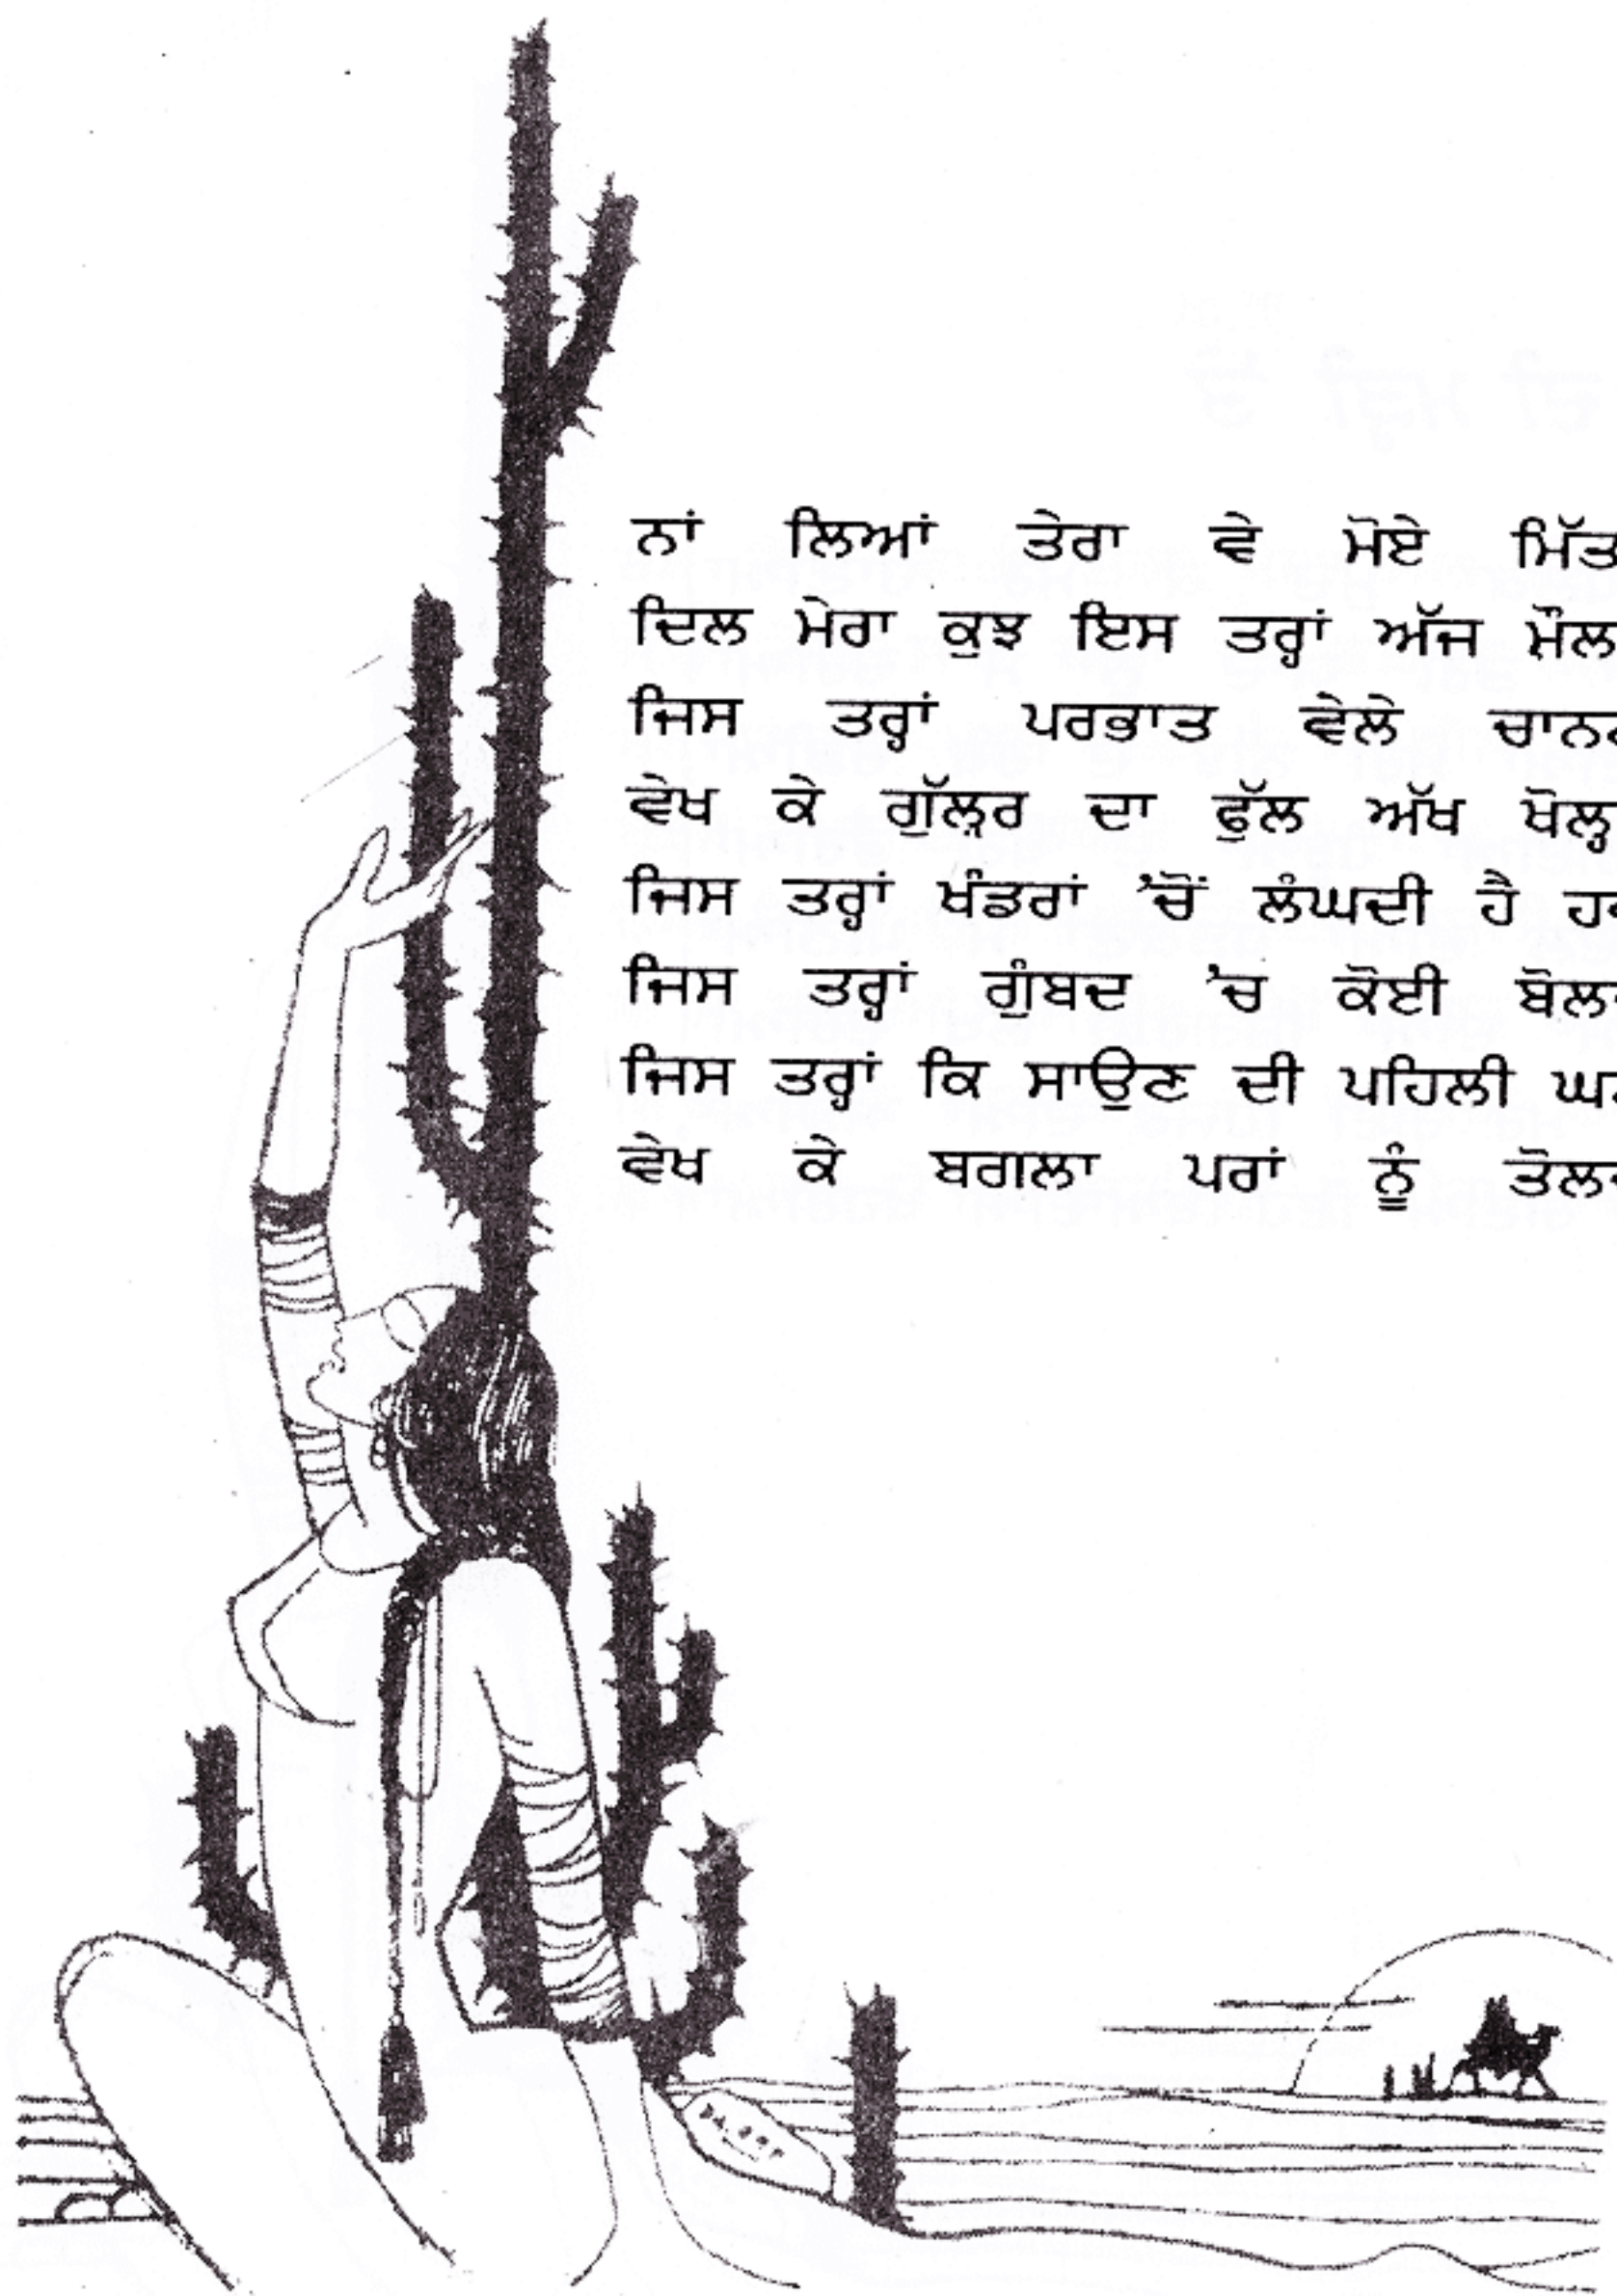 ਨਾਂ ਲਿਆਂ ਤੇਰਾ ਵੇ ਮੋਏ ਮਿੱਤ
ਦਿਲ ਮੇਰਾ ਕੁਝ ਇਸ ਤਰ੍ਹਾਂ ਅੱਜ ਮੌਲ
ਜਿਸ ਤਰ੍ਹਾਂ ਪਰਭਾਤ ਵੇਲੇ ਚਾਨ
ਵੇਖ ਕੇ ਗੁੱਲ੍ਹਰ ਦਾ ਫੁੱਲ ਅੱਖ ਖੋਲ੍ਹ
ਜਿਸ ਤਰ੍ਹਾਂ ਖੰਡਰਾਂ 'ਚੋਂ ਲੰਘਦੀ ਹੈ ਹ
ਜਿਸ ਤਰ੍ਹਾਂ ਗੁੰਬਦ 'ਚ ਕੋਈ ਬੋਲ
ਜਿਸ ਤਰ੍ਹਾਂ ਕਿ ਸਾਉਣ ਦੀ ਪਹਿਲੀ ਘ
ਵੇਖ ਕੇ ਬਗਲਾ ਪਰਾਂ ਨੂੰ ਤੋਲ